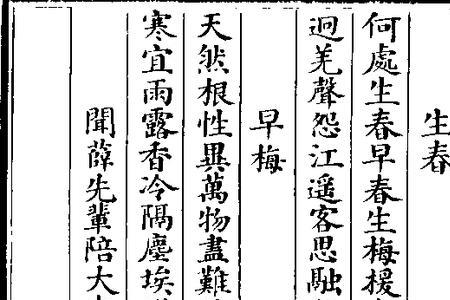 生春
何處生春早春生梅援
迥羌聲怨江遥客思融
早梅
天然根性異萬物盡難
寒宜雨露香冷隔塵埃
聞薛先輩陪大